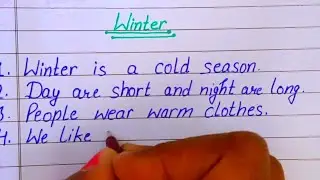 Winter
1. Winter is a cold season.
2. Day are short and night are long.
3. People wear warm clothes.
4. We like